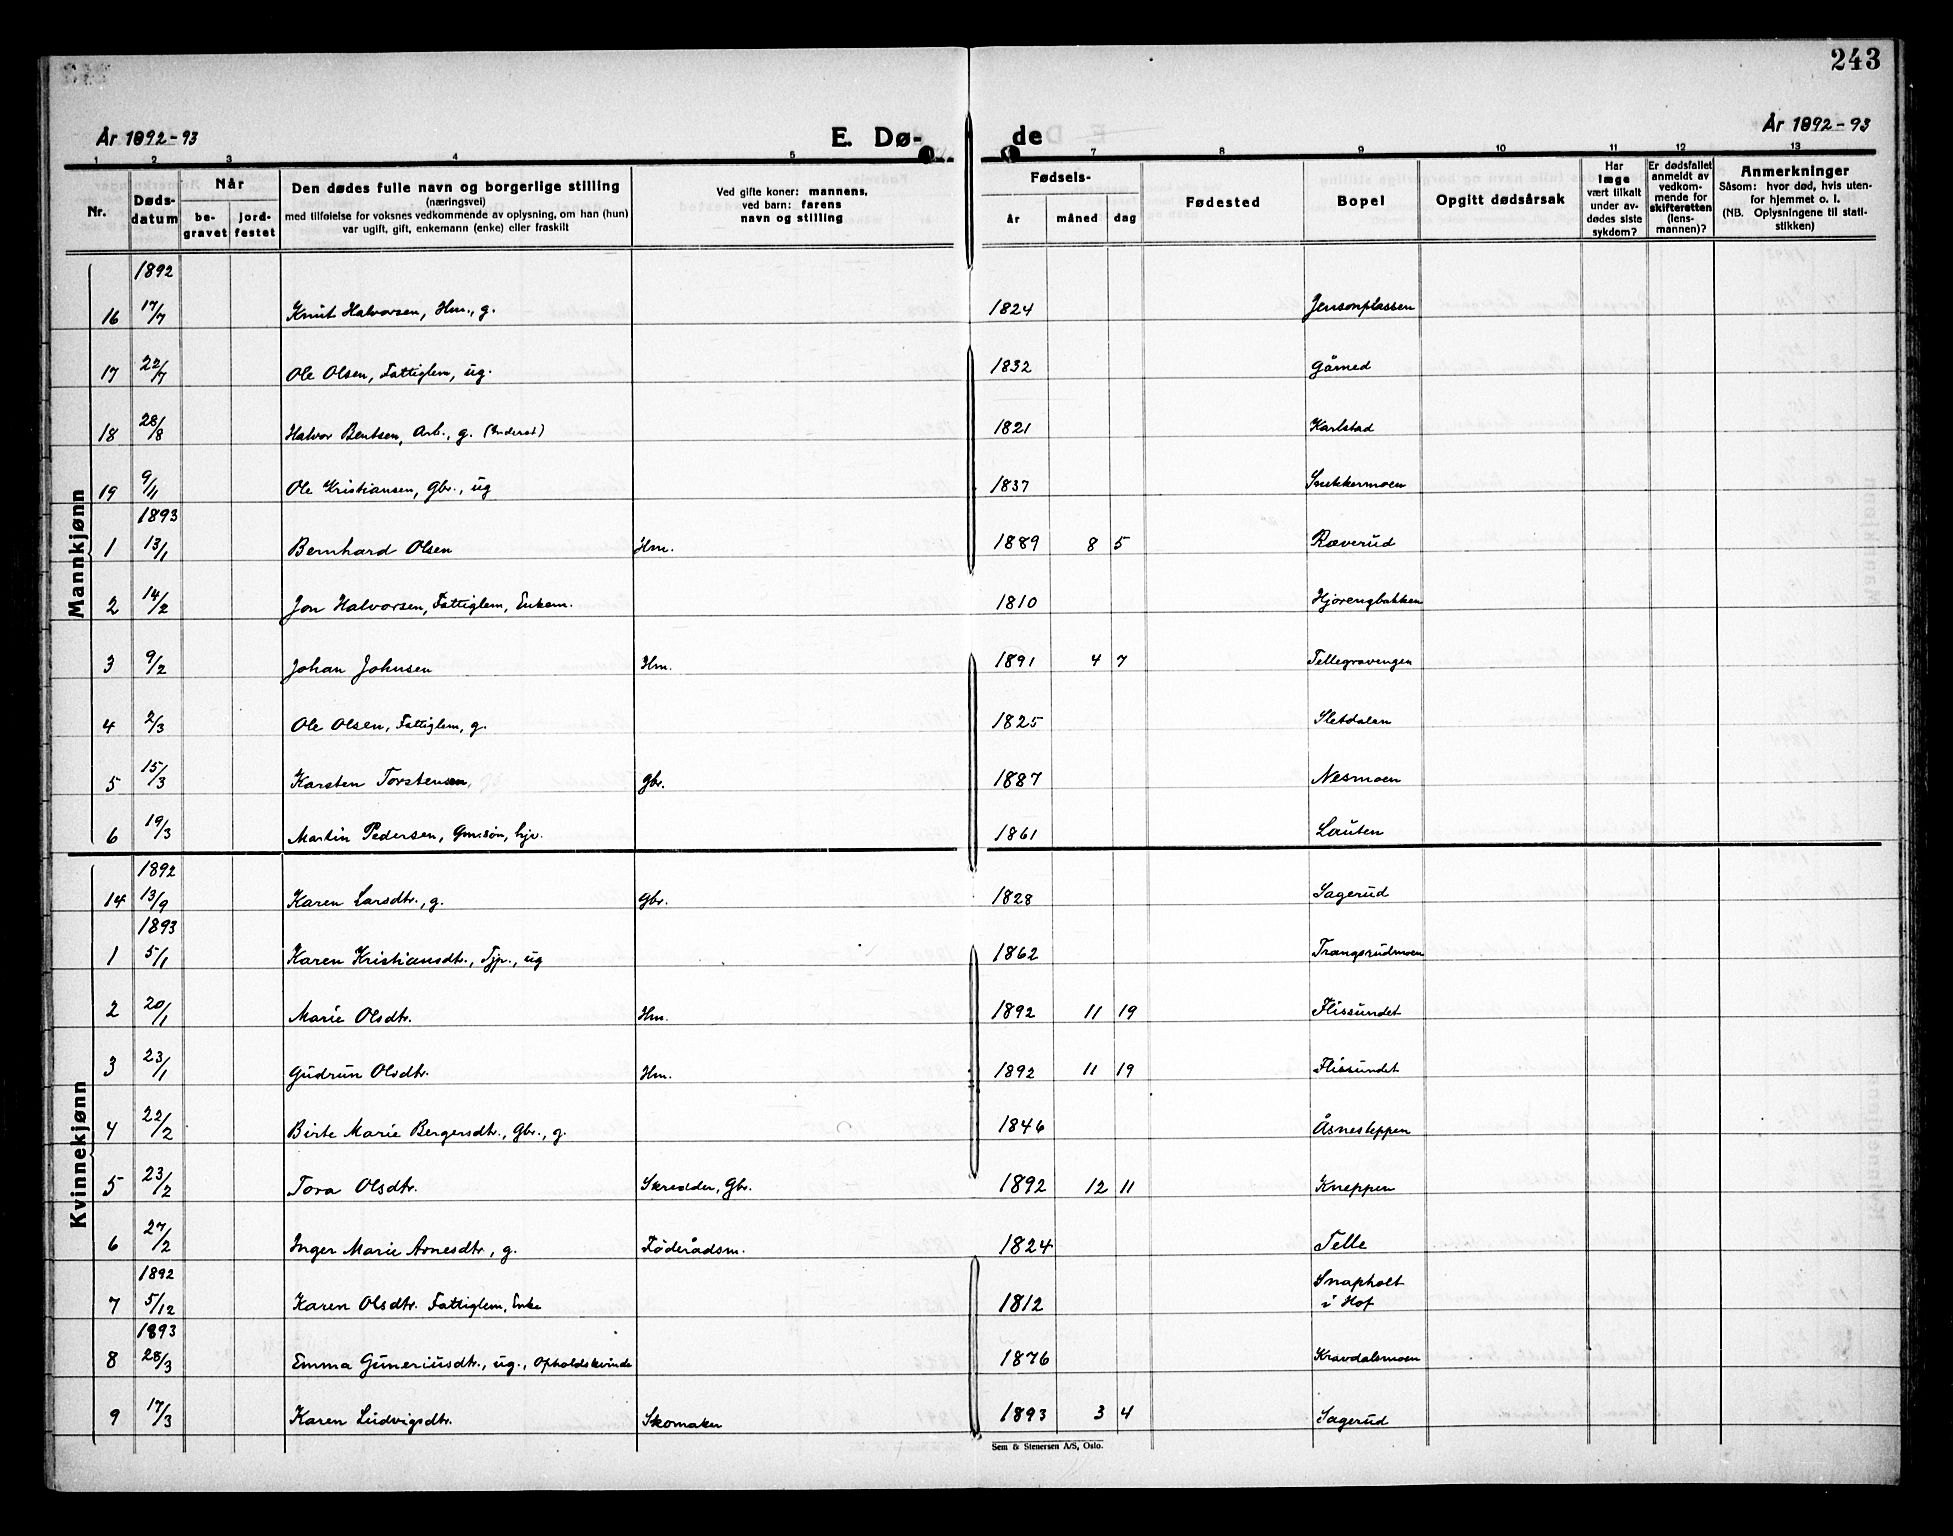 243
År 1892-93
E. Dø-
de
År 1892-93
1 2 3 4 5 7 8 9 10 11 12 13
Nr.
Døds-
datum
Når
be-
gravet
jord-
festet
Den dødes fulle navn og borgerlige stilling
(næringsvei)
med tilføielse for voksnes vedkommende av oplysning, om han (hun)
var ugift, gift, enkemann (enke) eller fraskilt
Ved gifte koner: mannens,
ved barn: farens
navn og stilling
Fødsels-
år måned dag
Fødested
Bopel
Opgitt dødsårsak
Har
læge
vært tilkalt
under av-
dødes siste
sykdom?
Er dødsfallet
anmeldt av
vedkom-
mende for
skifteretten
(lens-
mannen)?
Anmerkninger
Såsom: hvor død, hvis uten-
for hjemmet o. l.
(NB. Oplysningene til stati-
stikken)
Mannkjønn
1892
16 17/7 Knut Halvorsen, Hm., g. 1824 Jensonplassen
17 22/7 Ole Olsen, Fattiglem, ug. 1832 Gårned
18 28/8 Halvor Bentsen, Arb., g. 1821 Karlstad
19 9/11 Ole Kristiansen, Gbr., ug 1837 Snekkermoen
1893
1 13/1 Bernhard Olsen Hm. 1889 8 5 Ræverud
2 14/2 Jon Halvorsen, Fattiglem, Enkem. 1810 Hjorengbakken
3 9/2 Johan Johnsen Hm. 1891 4 7 Tellegravengen
4 2/3 Ole Olsen, Fattiglem, g. 1825 Sletdalen
5 15/3 Karsten Torstensen, Gbr. 1887 Nesmoen
6 19/3 Martin Pedersen, Gm.søn, hjv. 1861 Lauten
Kvinnekjønn
1892
14 13/9 Karen Larsdtr., g. Gbr. 1828 Sagerud
1893
1 5/1 Karen Kristiansdtr., Tjp., ug 1862 Trangsrudmoen
2 20/1 Marie Olsdtr. Hm. 1892 11 19 Flissundet
3 23/1 Gudrun Olsdtr. Hm. 1892 11 19 Flissundet
4 22/2 Birte Marie Bergersdtr., Gbr., g. 1846 Åsnesleppen
5 23/2 Tora Olsdtr. Skredder, Gbr. 1892 12 11 Kneppen
6 27/2 Inger Marie Arnesdtr, g. Føderådsm. 1824 Telle
1892
7 5/12 Karen Olsdtr. Fattiglem, Enke 1812 Snapholt
i Hof
1893
8 28/3 Emma Guneriusdtr., ug., Opholdskvinde 1876 Kravdalsmoen
9 17/3 Karen Ludvigsdtr. Skomaker 1893 3 4 Sagerud
Sem & Stenersen A/S, Oslo.